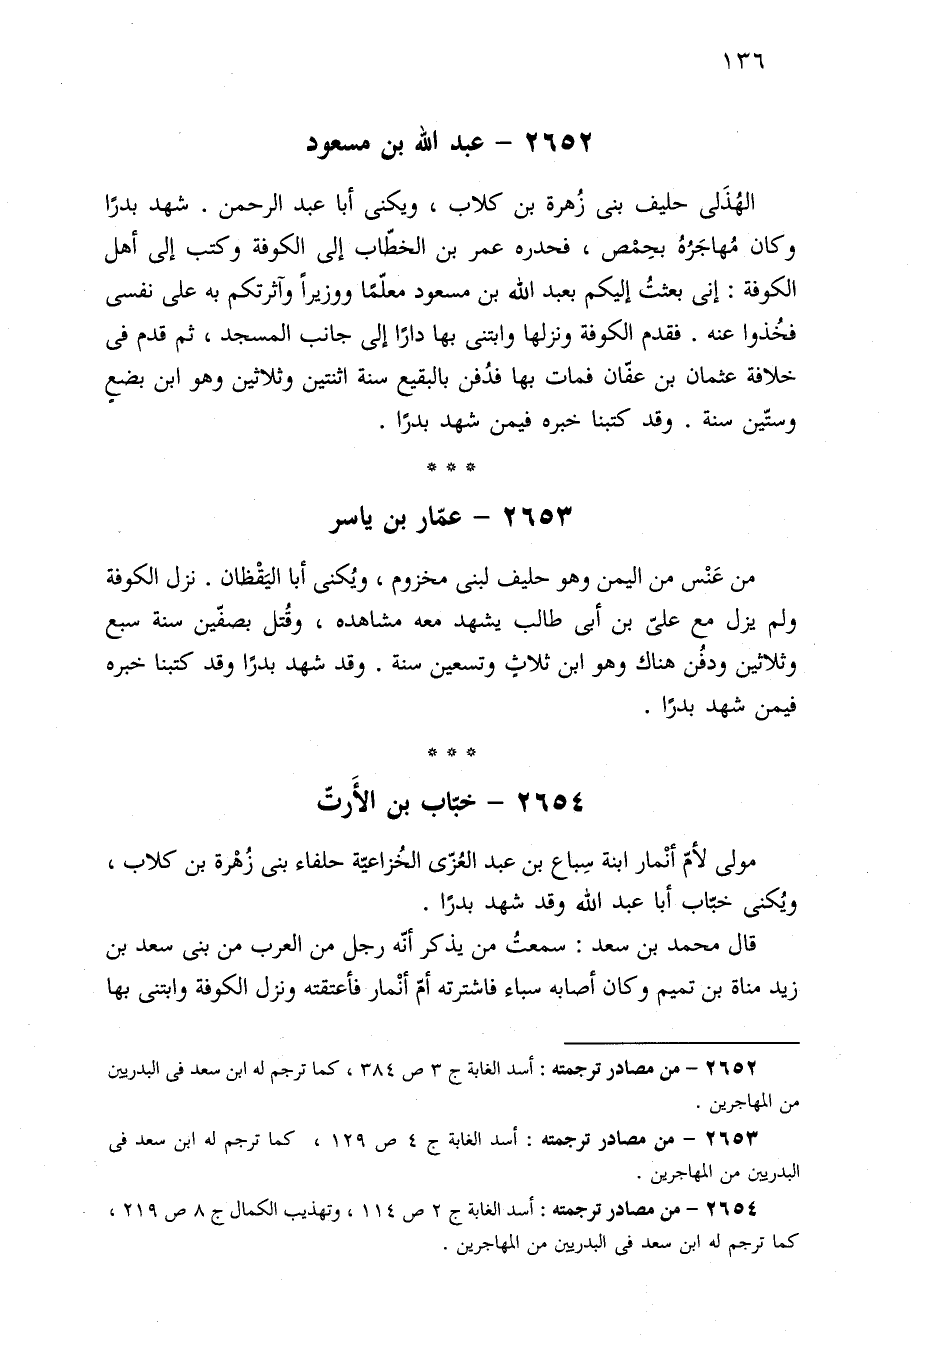 ١٣٦
٢٦٥٢ – عبد الله بن مسعود
الهُذَلى حليف بنى زُهرة بن كلاب ، ويكنى أبا عبد الرحمن . شهد بدرًا
وكان مُهاجَرُهُ بحِمْص ، فحدره عمر بن الخطّاب إلى الكوفة وكتب إلى أهل
الكوفة : إنى بعثتُ إليكم بعبد الله بن مسعود معلّمًا ووزيراً وآثرتكم به على نفسى
فخُذوا عنه . فقدم الكوفة ونزلها وابتنى بها دارًا إلى جانب المسجد ، ثم قدم فى
خلافة عثمان بن عفّان فمات بها فدُفن بالبقيع سنة اثنتين وثلاثين وهو ابن بضعٍ
وستّين سنة . وقد كتبنا خبره فيمن شهد بدرًا .
* * *
٢٦٥٣ – عمّار بن ياسر
من عَنْس من اليمن وهو حليف لبنى مخزوم ، ويُكنى أبا اليَقْظان . نزل الكوفة
ولم يزل مع علىّ بن أبى طالب يشهد معه مشاهده ، وقُتل بصفّين سنة سبع
وثلاثين ودفُن هناك وهو ابن ثلاثٍ وتسعين سنة . وقد شهد بدرًا وقد كتبنا خبره
فيمن شهد بدرًا .
* * *
٢٦٥٤ – خبّاب بن الأَرتّ
مولى لأمّ أنْمار ابنة سِباع بن عبد العُزّى الخُزاعيّة حلفاء بنى زُهْرة بن كلاب ،
ويُكنى خبّاب أبا عبد الله وقد شهد بدرًا .
قال محمد بن سعد : سمعتُ من يذكر أنّه رجل من العرب من بنى سعد بن
زيد مناة بن تميم وكان أصابه سباء فاشترته أمّ أنْمار فأعتقته ونزل الكوفة وابتنى بها
٢٦٥٢ – من مصادر ترجمته : أسد الغابة ج ٣ ص ٣٨٤ ، كما ترجم له ابن سعد فى البدريين
من المهاجرين .
٢٦٥٣ – من مصادر ترجمته : أسد الغابة ج ٤ ص ١٢٩ ، كما ترجم له ابن سعد فى
البدريين من المهاجرين .
٢٦٥٤ – من مصادر ترجمته : أسد الغابة ج ٢ ص ١١٤ ، وتهذيب الكمال ج ٨ ص ٢١٩ ،
كما ترجم له ابن سعد فى البدريين من المهاجرين .